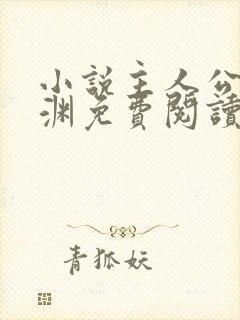 小説主人公
淵免費閱讀
青狐妖